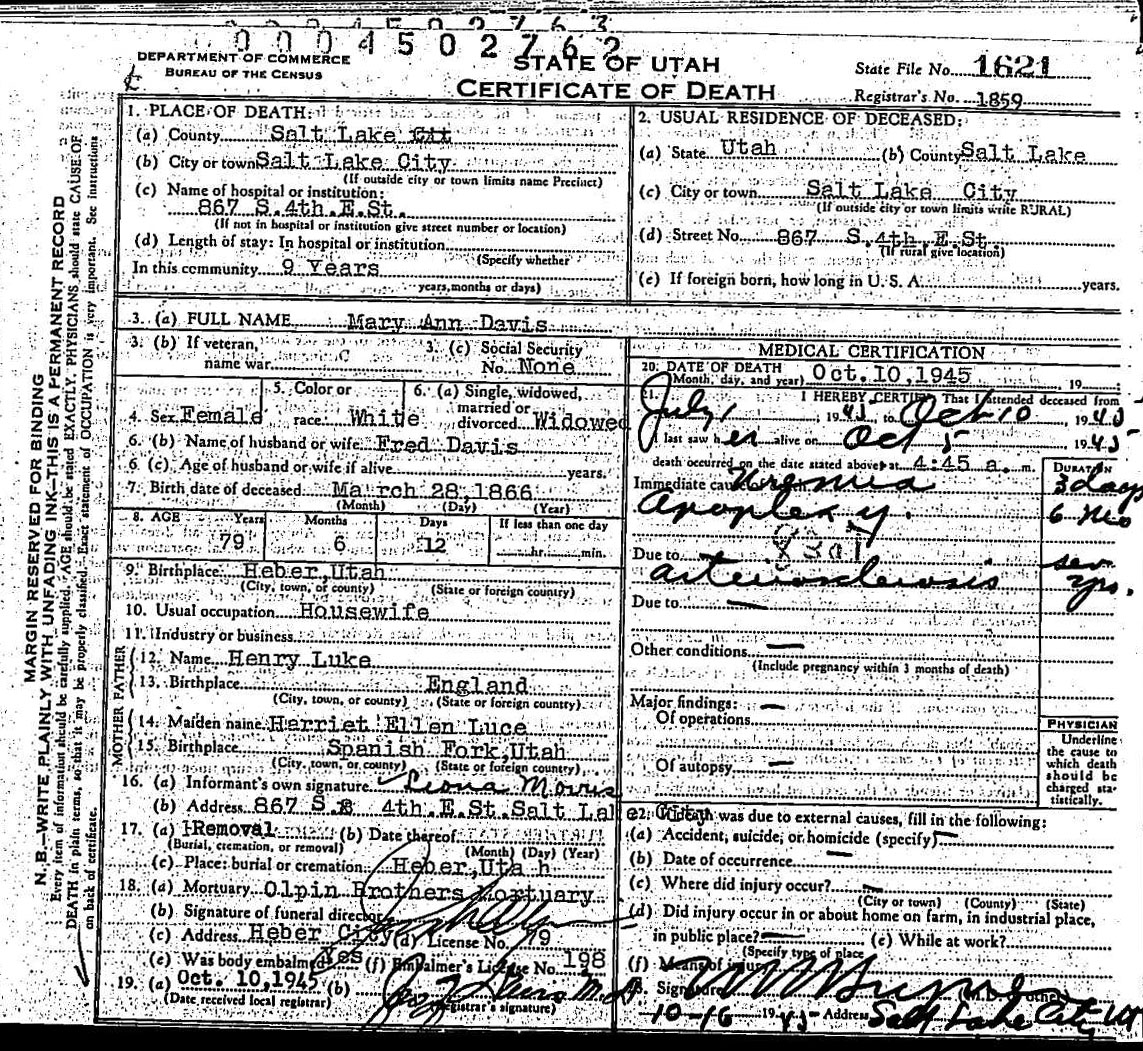 0004502763
0004502762
DEPARTMENT OF COMMERCE
BUREAU OF THE CENSUS
STATE OF UTAH
CERTIFICATE OF DEATH
State File No. 1621
Registrar's No. 1859
MARGIN RESERVED FOR BINDING
N. B.—WRITE PLAINLY WITH UNFADING INK—THIS IS A PERMANENT RECORD
Every item of information should be carefully supplied. AGE should be stated EXACTLY. PHYSICIANS should state CAUSE OF
DEATH in plain terms, so that it may be properly classified. Exact statement of OCCUPATION is very important. See instructions
on back of certificate.
1. PLACE OF DEATH:
(a) County Salt Lake Cit
(b) City or town Salt Lake City
(If outside city or town limits name Precinct)
(c) Name of hospital or institution:
867 S.4th.E.St.
(If not in hospital or institution give street number or location)
(d) Length of stay: In hospital or institution
(Specify whether
In this community 9 Years
years, months or days)
2. USUAL RESIDENCE OF DECEASED:
(a) State Utah (b) County Salt Lake
(c) City or town Salt Lake City
(If outside city or town limits write RURAL)
(d) Street No. 867 S.4th.E.St.
(If rural give location)
(e) If foreign born, how long in U. S. A. years.
3. (a) FULL NAME Mary Ann Davis
3. (b) If veteran,
name war
3. (c) Social Security
No. None
4. Sex Female
5. Color or
race White
6. (a) Single, widowed,
married or
divorced Widowed
6. (b) Name of husband or wife Fred Davis
6. (c) Age of husband or wife if alive years.
7. Birth date of deceased March 28,1866
(Month) (Day) (Year)
8. AGE Years Months Days If less than one day
79 6 12 hr. min.
9. Birthplace Heber,Utah
(City, town, or county) (State or foreign country)
10. Usual occupation Housewife
11. Industry or business
FATHER
12. Name Henry Luke
13. Birthplace England
(City, town, or county) (State or foreign country)
MOTHER
14. Maiden name Harriet Ellen Luce
15. Birthplace Spanish Fork,Utah
(City, town, or county) (State or foreign country)
16. (a) Informant's own signature Leona Morris
(b) Address 867 S. 4th.E.St.Salt Lake City
17. (a) Removal (b) Date thereof
(Burial, cremation, or removal) (Month) (Day) (Year)
(c) Place: burial or cremation Heber,Utah
18. (a) Mortuary Olpin Brothers Mortuary
(b) Signature of funeral director
(c) Address Heber City (d) License No. 79
(e) Was body embalmed Yes (f) Embalmer's License No. 198
19. (a) Oct. 10,1945 (b) M.D.
(Date received local registrar) (Registrar's signature)
MEDICAL CERTIFICATION
20. DATE OF DEATH
(Month, day, and year) Oct.10,1945 19
21. I HEREBY CERTIFY That I attended deceased from
July 1, 1945 to Oct 10, 1945
I last saw her alive on Oct 5 1945
death occurred on the date stated above at 4:45 a. m.
DURATION
Immediate cause of death Uremia 3 days
Apoplexy. 6 Mo
83a1
Due to
arteriosclerosis sev yrs.
Due to —
Other conditions —
(Include pregnancy within 3 months of death)
Major findings: —
Of operations
Of autopsy —
PHYSICIAN
Underline
the cause to
which death
should be
charged sta-
tistically.
22. If death was due to external causes, fill in the following:
(a) Accident, suicide, or homicide (specify) —
(b) Date of occurrence —
(c) Where did injury occur? —
(City or town) (County) (State)
(d) Did injury occur in or about home on farm, in industrial place,
in public place? — (e) While at work?
(Specify type of place
(f) Means of injury
23. Signature (M.D. or other)
10-16 1945 Address Salt Lake City Ut